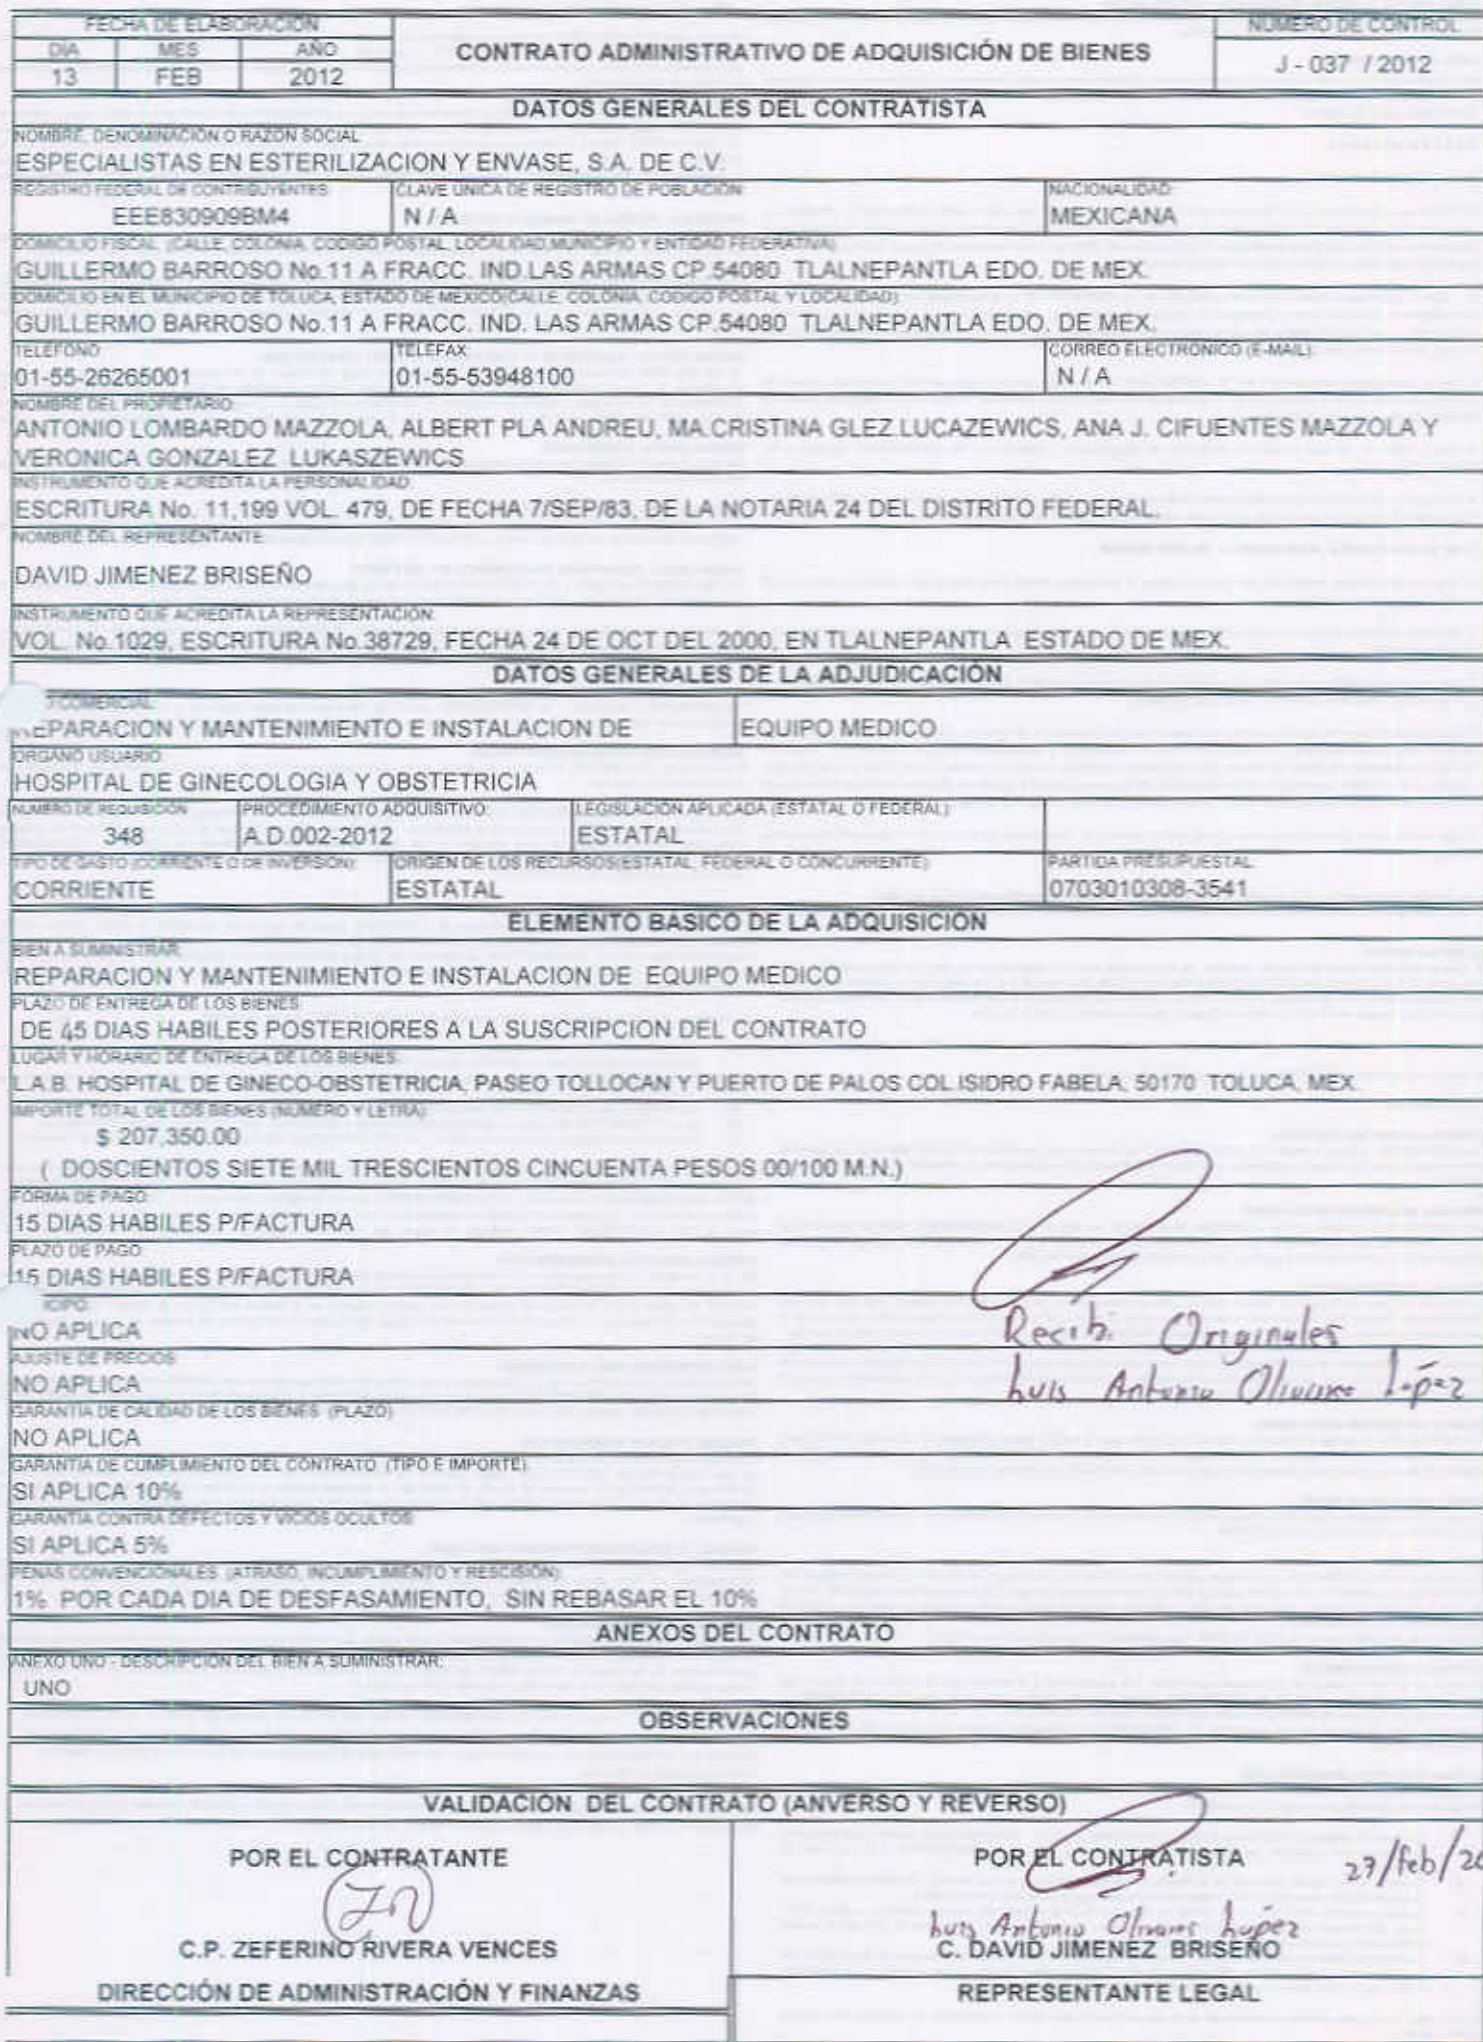 FECHA DE ELABORACIÓN
DÍA MES AÑO
13 FEB 2012
CONTRATO ADMINISTRATIVO DE ADQUISICIÓN DE BIENES
NÚMERO DE CONTROL
J - 037 / 2012
DATOS GENERALES DEL CONTRATISTA
NOMBRE, DENOMINACIÓN O RAZÓN SOCIAL
ESPECIALISTAS EN ESTERILIZACION Y ENVASE, S.A. DE C.V.
REGISTRO FEDERAL DE CONTRIBUYENTES: CLAVE ÚNICA DE REGISTRO DE POBLACIÓN: NACIONALIDAD:
EEE830909BM4 N / A MEXICANA
DOMICILIO FISCAL (CALLE, COLONIA, CODIGO POSTAL, LOCALIDAD,MUNICIPIO Y ENTIDAD FEDERATIVA)
GUILLERMO BARROSO No.11 A FRACC. IND.LAS ARMAS CP.54080 TLALNEPANTLA EDO. DE MEX.
DOMICILIO EN EL MUNICIPIO DE TOLUCA, ESTADO DE MÉXICO(CALLE, COLONIA, CODIGO POSTAL Y LOCALIDAD)
GUILLERMO BARROSO No.11 A FRACC. IND. LAS ARMAS CP.54080 TLALNEPANTLA EDO. DE MEX.
TELÉFONO: TELEFAX: CORREO ELECTRÓNICO (E-MAIL):
01-55-26265001 01-55-53948100 N / A
NOMBRE DEL PROPIETARIO:
ANTONIO LOMBARDO MAZZOLA, ALBERT PLA ANDREU, MA.CRISTINA GLEZ.LUCAZEWICS, ANA J. CIFUENTES MAZZOLA Y
VERONICA GONZALEZ LUKASZEWICS
INSTRUMENTO QUE ACREDITA LA PERSONALIDAD:
ESCRITURA No. 11,199 VOL. 479, DE FECHA 7/SEP/83, DE LA NOTARIA 24 DEL DISTRITO FEDERAL.
NOMBRE DEL REPRESENTANTE:
DAVID JIMENEZ BRISEÑO
INSTRUMENTO QUE ACREDITA LA REPRESENTACIÓN:
VOL. No.1029, ESCRITURA No.38729, FECHA 24 DE OCT DEL 2000, EN TLALNEPANTLA ESTADO DE MEX.
DATOS GENERALES DE LA ADJUDICACIÓN
COMERCIAL:
EPARACION Y MANTENIMIENTO E INSTALACION DE EQUIPO MEDICO
ORGANO USUARIO:
HOSPITAL DE GINECOLOGIA Y OBSTETRICIA
NUMERO DE REQUISICIÓN PROCEDIMIENTO ADQUISITIVO: LEGISLACIÓN APLICADA (ESTATAL O FEDERAL):
348 A.D.002-2012 ESTATAL
TIPO DE GASTO (CORRIENTE O DE INVERSIÓN): ORIGEN DE LOS RECURSOS(ESTATAL, FEDERAL O CONCURRENTE): PARTIDA PRESUPUESTAL:
CORRIENTE ESTATAL 0703010308-3541
ELEMENTO BASICO DE LA ADQUISICION
BIEN A SUMINISTRAR:
REPARACION Y MANTENIMIENTO E INSTALACION DE EQUIPO MEDICO
PLAZO DE ENTREGA DE LOS BIENES:
DE 45 DIAS HABILES POSTERIORES A LA SUSCRIPCION DEL CONTRATO
LUGAR Y HORARIO DE ENTREGA DE LOS BIENES:
L.A.B. HOSPITAL DE GINECO-OBSTETRICIA, PASEO TOLLOCAN Y PUERTO DE PALOS COL.ISIDRO FABELA, 50170 TOLUCA, MEX.
IMPORTE TOTAL DE LOS BIENES (NUMERO Y LETRA):
$ 207,350.00
( DOSCIENTOS SIETE MIL TRESCIENTOS CINCUENTA PESOS 00/100 M.N.)
FORMA DE PAGO:
15 DIAS HABILES P/FACTURA
PLAZO DE PAGO:
15 DIAS HABILES P/FACTURA
ICIPO:
NO APLICA
Recibi Originales
AJUSTE DE PRECIOS
NO APLICA
Luis Antonio Olivares López
GARANTIA DE CALIDAD DE LOS BIENES (PLAZO):
NO APLICA
GARANTÍA DE CUMPLIMIENTO DEL CONTRATO (TIPO E IMPORTE):
SI APLICA 10%
GARANTIA CONTRA DEFECTOS Y VICIOS OCULTOS:
SI APLICA 5%
PENAS CONVENCIONALES (ATRASO, INCUMPLIMIENTO Y RESCISIÓN):
1% POR CADA DIA DE DESFASAMIENTO, SIN REBASAR EL 10%
ANEXOS DEL CONTRATO
ANEXO UNO - DESCRIPCIÓN DEL BIEN A SUMINISTRAR:
UNO
OBSERVACIONES
VALIDACION DEL CONTRATO (ANVERSO Y REVERSO)
POR EL CONTRATANTE
C.P. ZEFERINO RIVERA VENCES
DIRECCIÓN DE ADMINISTRACIÓN Y FINANZAS
POR EL CONTRATISTA
27/feb/20
Luis Antonio Olivares López
C. DAVID JIMENEZ BRISEÑO
REPRESENTANTE LEGAL